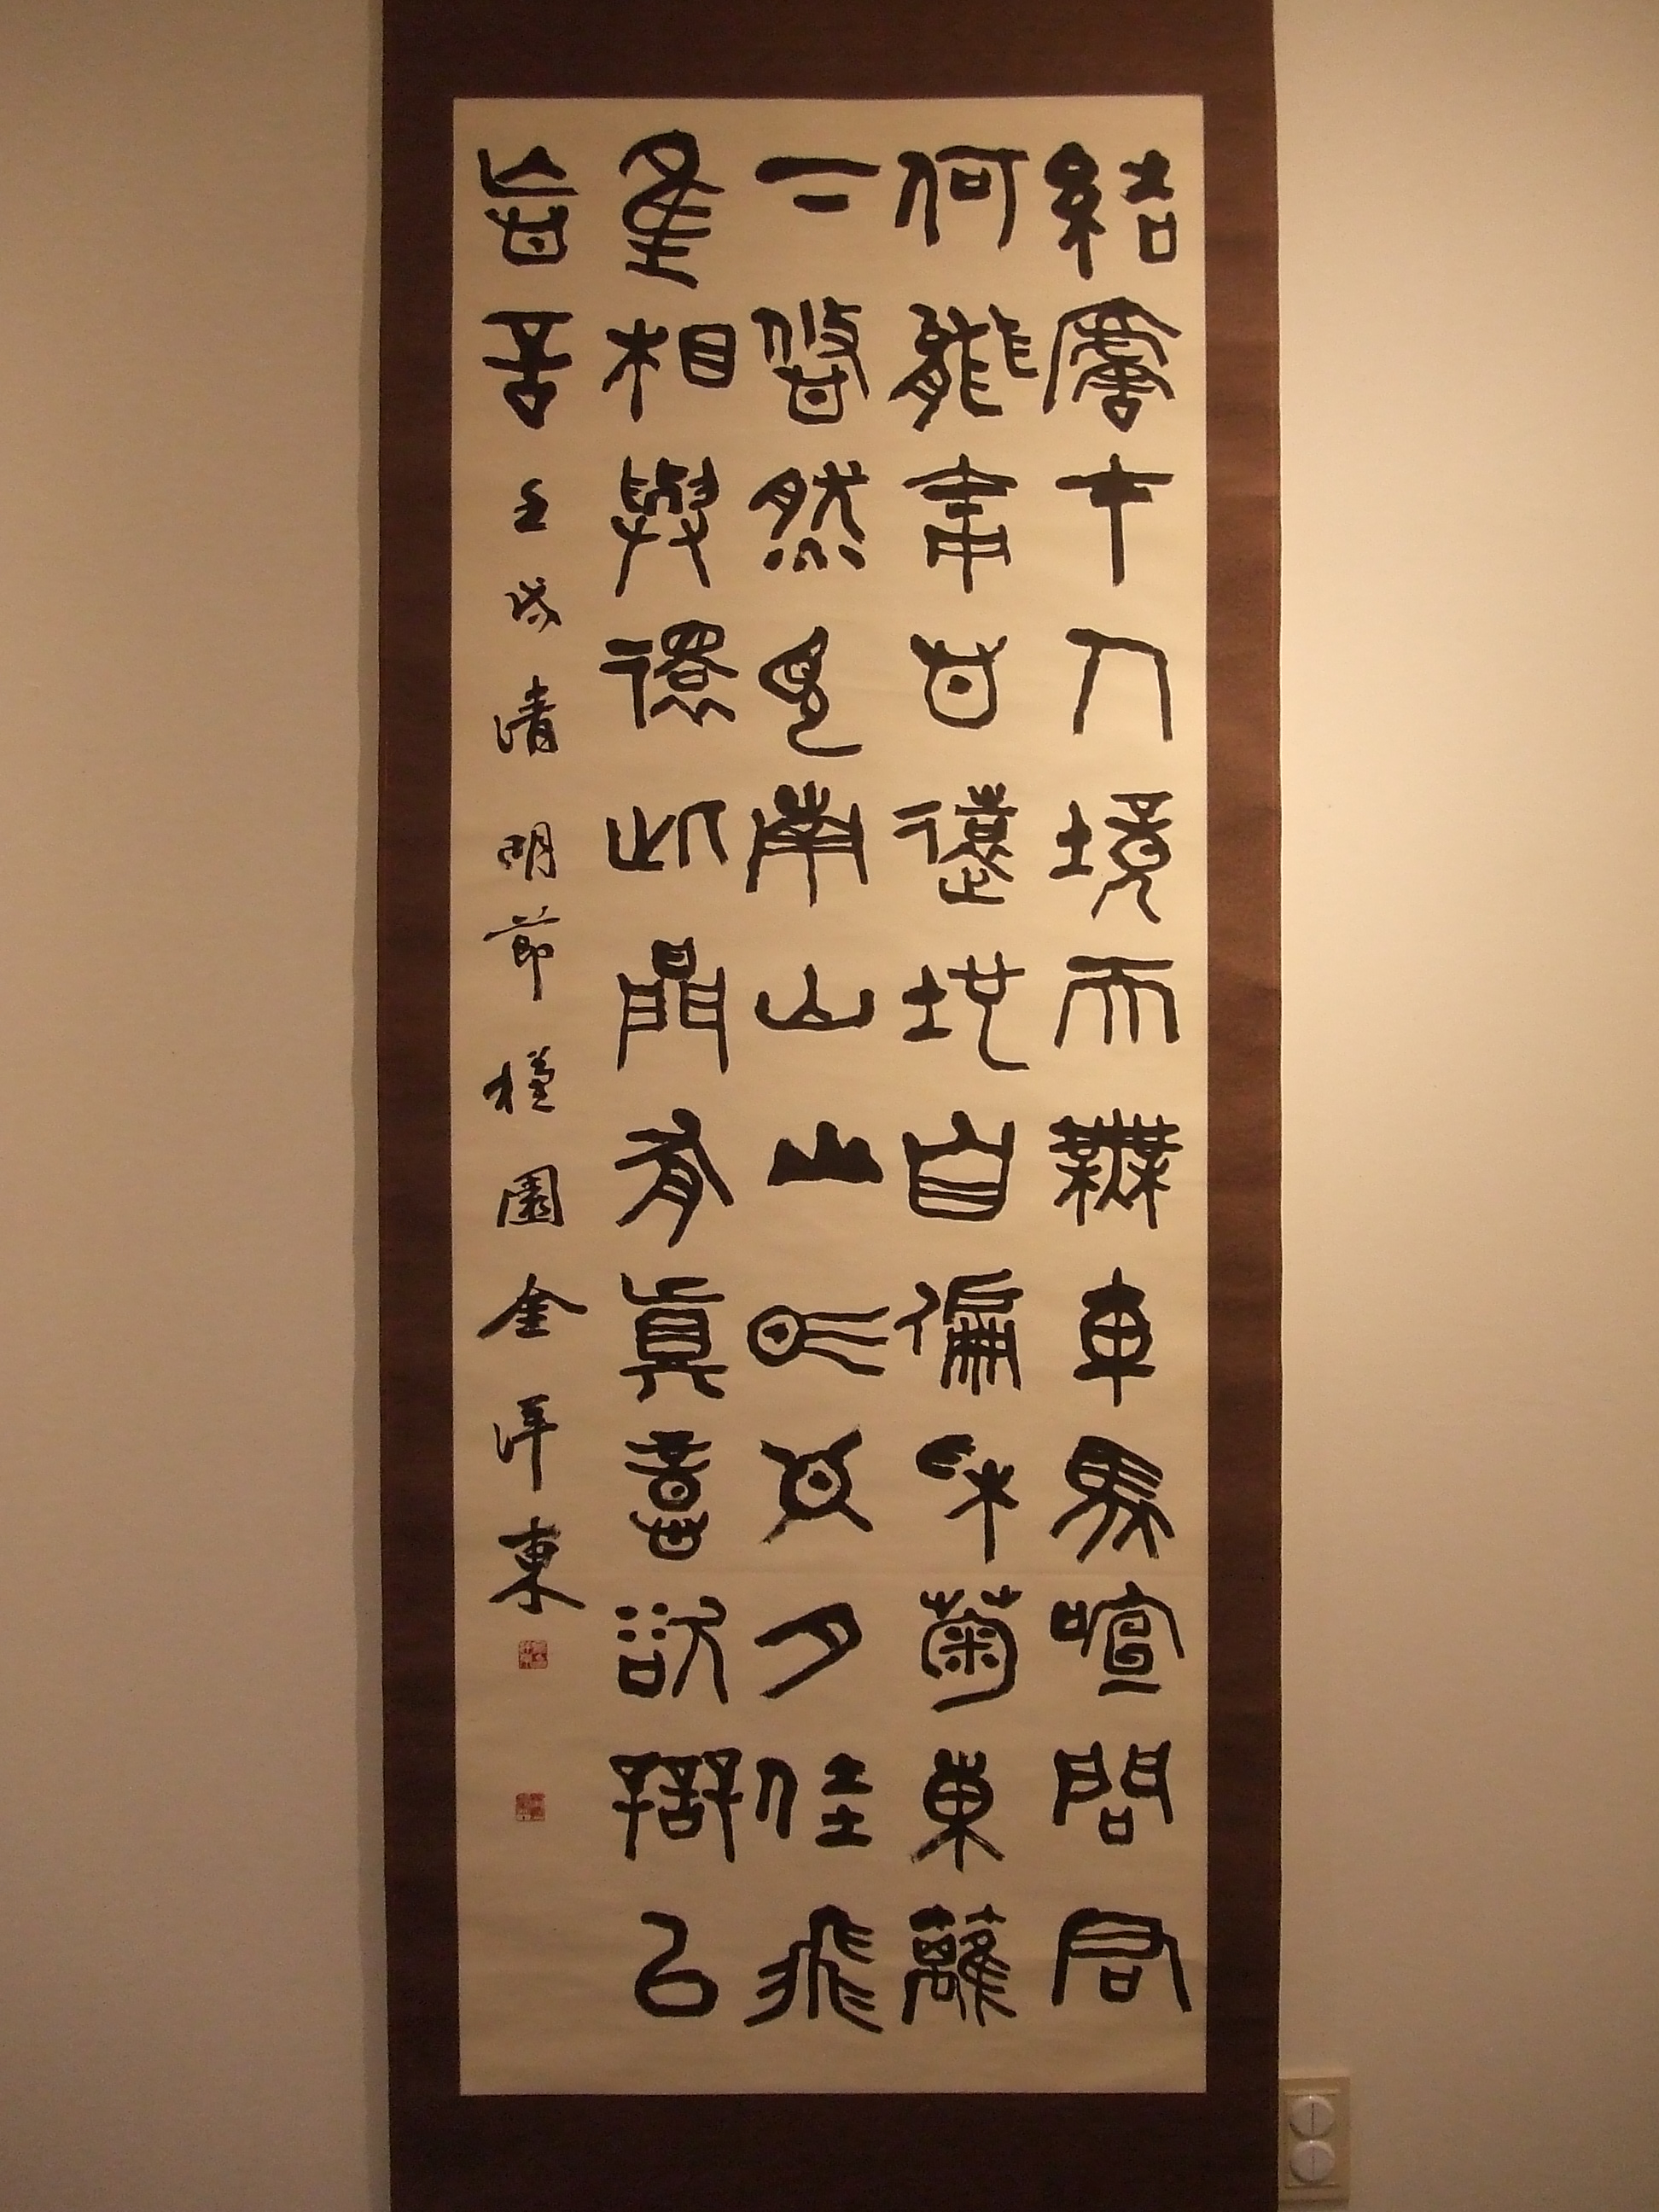 結廬在人境而無車馬喧問君
何能爾心遠地自偏采菊東籬
下悠然見南山山氣日夕佳飛
鳥相與還此間有眞意欲辯已
忘言 清明節 槿園 金洋東